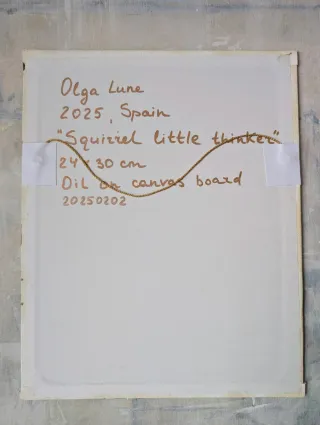 Olga Lune
2025, Spain
"Squirrel little thinker"
24 × 30 cm
Oil on canvas board
20250202